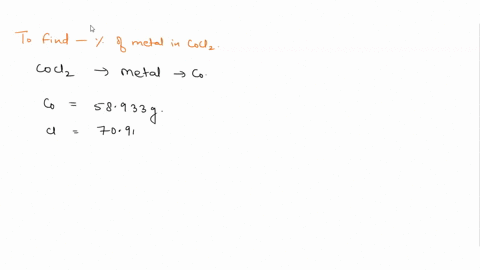 To find – % of metal in CoCl2.
CoCl2 → metal → Co.
Co = 58.933g.
Cl = 70.91